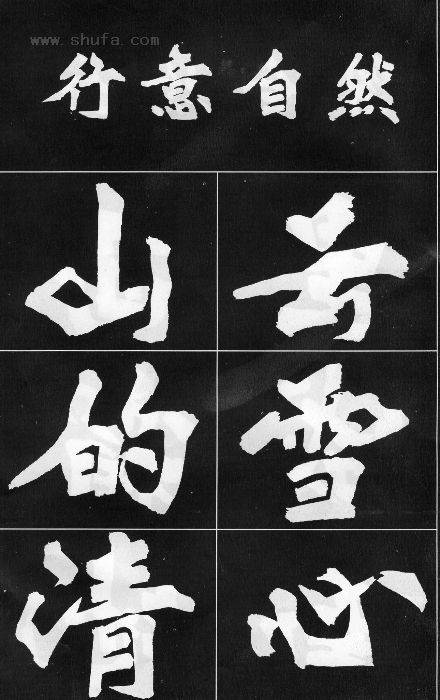 www.shufa.com
行意自然
山云
的雪
清心